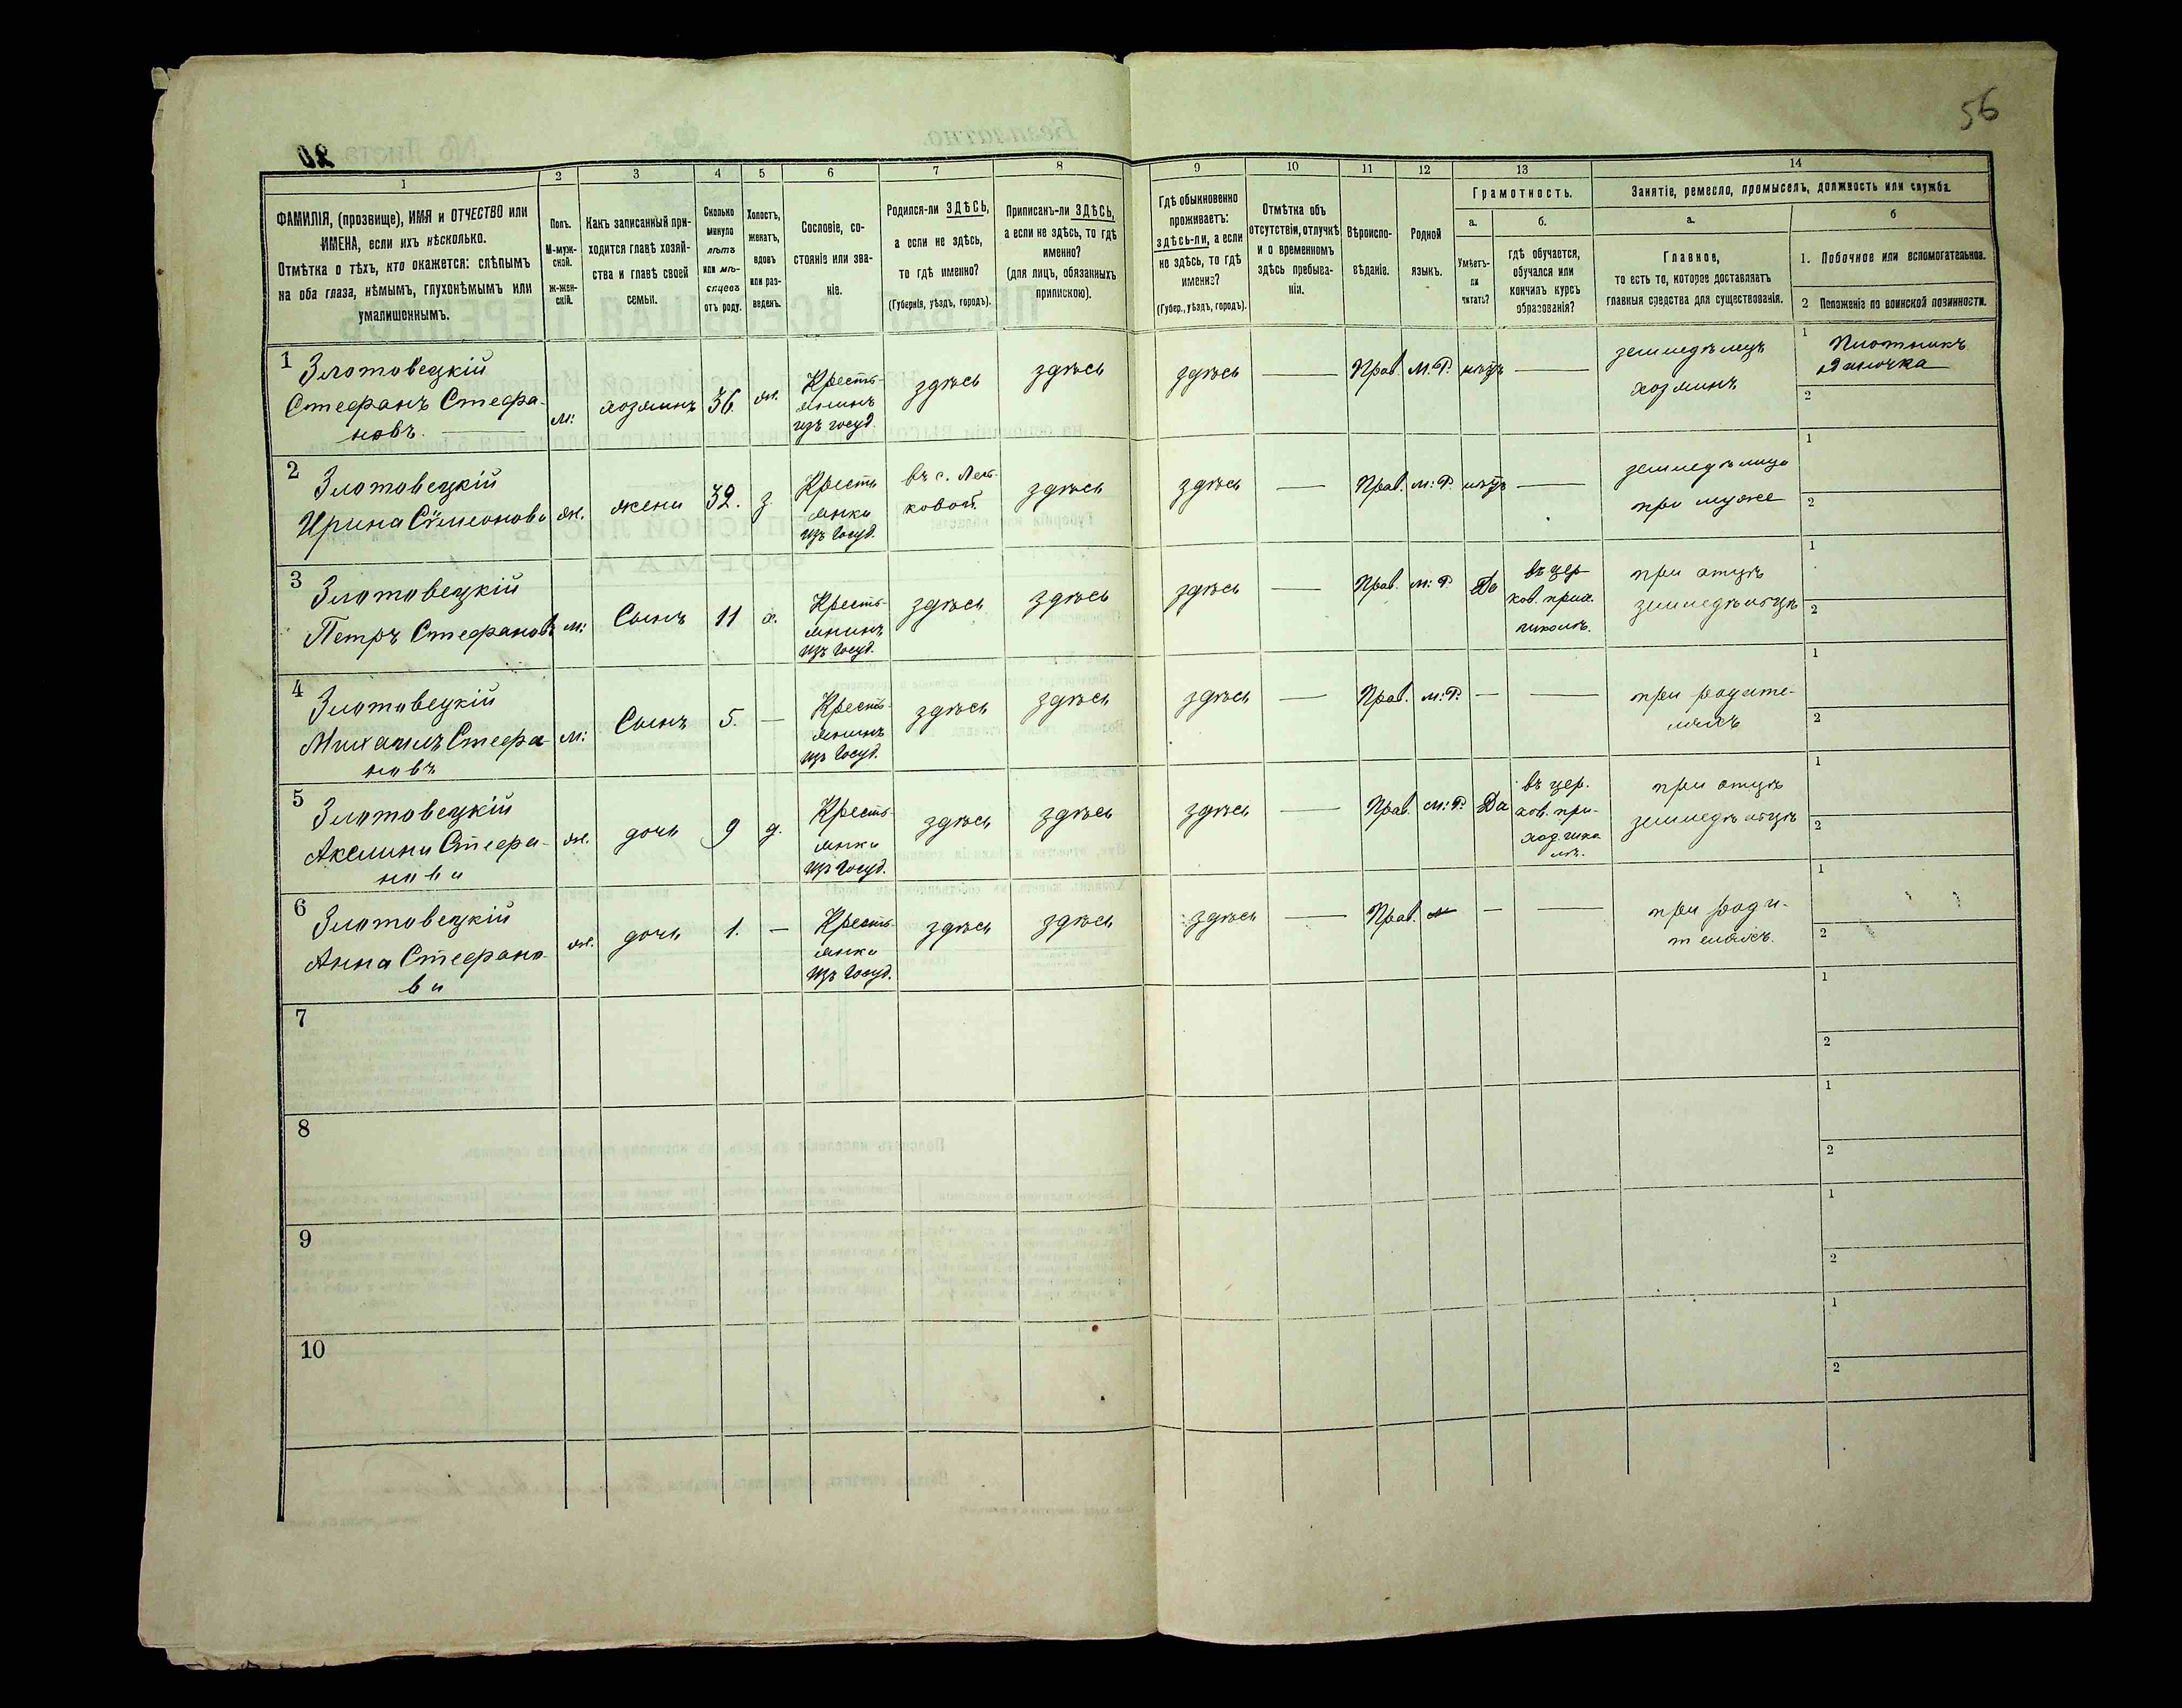 56
1 2 3 4 5 6 7 8 9 10 11 12 13 14
ФАМИЛІЯ, (прозвище), ИМЯ и ОТЧЕСТВО или
ИМЕНА, если ихъ нѣсколько.
Отмѣтка о тѣхъ, кто окажется: слѣпымъ
на оба глаза, нѣмымъ, глухонѣмымъ или
умалишеннымъ.
Полъ.
М-муж-
ской.
ж-жен-
скій.
Какъ записанный при-
ходится главѣ хозяй-
ства и главѣ своей
семьи.
Сколько
минуло
лѣтъ
или мѣ-
сяцевъ
отъ роду.
Холостъ,
женатъ,
вдовъ
или раз-
веденъ.
Сословіе, со-
стояніе или зва-
ніе.
Родился-ли ЗДѢСЬ,
а если не здѣсь,
то гдѣ именно?
(Губернія, уѣздъ, городъ).
Приписанъ-ли ЗДѢСЬ,
а если не здѣсь, то гдѣ
именно?
(для лицъ, обязанныхъ
припискою).
Гдѣ обыкновенно
проживаетъ:
здѣсь-ли, а если
не здѣсь, то гдѣ
именно?
(Губер., уѣздъ, городъ).
Отмѣтка объ
отсутствіи, отлучкѣ
и о временномъ
здѣсь пребыва-
ніи.
Вѣроиспо-
вѣданіе.
Родной
языкъ.
Грамотность.
а.
Умѣетъ-
ли
читать?
б.
гдѣ обучается,
обучался или
кончилъ курсъ
образованія?
Занятіе, ремесло, промыселъ, должность или служба.
а.
Главное,
то есть то, которое доставляетъ
главныя средства для существованія.
б
1. Побочное или вспомогательное.
2 Положеніе по воинской повинности.
1 Злотовецкій
Стефанъ Стефа-
новъ.
м:
хозяинъ
36.
ж.
Кресть-
янинъ
изъ госуд.
здѣсь
здѣсь
здѣсь
Прав.
м.Р.
нѣтъ
земледѣлецъ
хозяинъ
1 Плотникъ
одиночка
2
2 Злотовецкій
Ирина Сѵмеонова
ж.
жена
32.
з.
Кресть
янка
изъ Госуд.
въ с.
здѣсь
здѣсь
Прав.
м:Р.
нѣтъ
земледѣлица
при муже
1
2
3 Злотовецкій
Петръ Стефановъ
м:
Сынъ
11
х.
Кресть-
янинъ
изъ Госуд.
здѣсь
здѣсь
здѣсь
Прав.
м:Р.
Да
въ цер-
ков. прих.
школѣ.
при отцѣ
земледѣльцѣ
1
2
4 Злотовецкій
Михаилъ Стефа-
новъ
м:
Сынъ
5.
Кресть-
янинъ
изъ Госуд.
здѣсь
здѣсь
здѣсь
Прав.
м:Р.
при родите-
ляхъ
1
2
5 Злотовецкій
Акелина Стефа-
нова
ж.
дочь
9
д.
Кресть-
янка
изъ Госуд.
здѣсь
здѣсь
здѣсь
Прав.
м:Р.
Да
въ цер.
ков. при-
ход. шко
лѣ.
при отцѣ
земледѣльцѣ
1
2
6 Злотовецкій
Анна Стефано-
ва
ж.
дочь
1.
Кресть-
янка
изъ Госуд.
здѣсь
здѣсь
здѣсь
Прав.
при роди-
теляхъ.
1
2
7
1
2
8
1
2
9
1
2
10
1
2